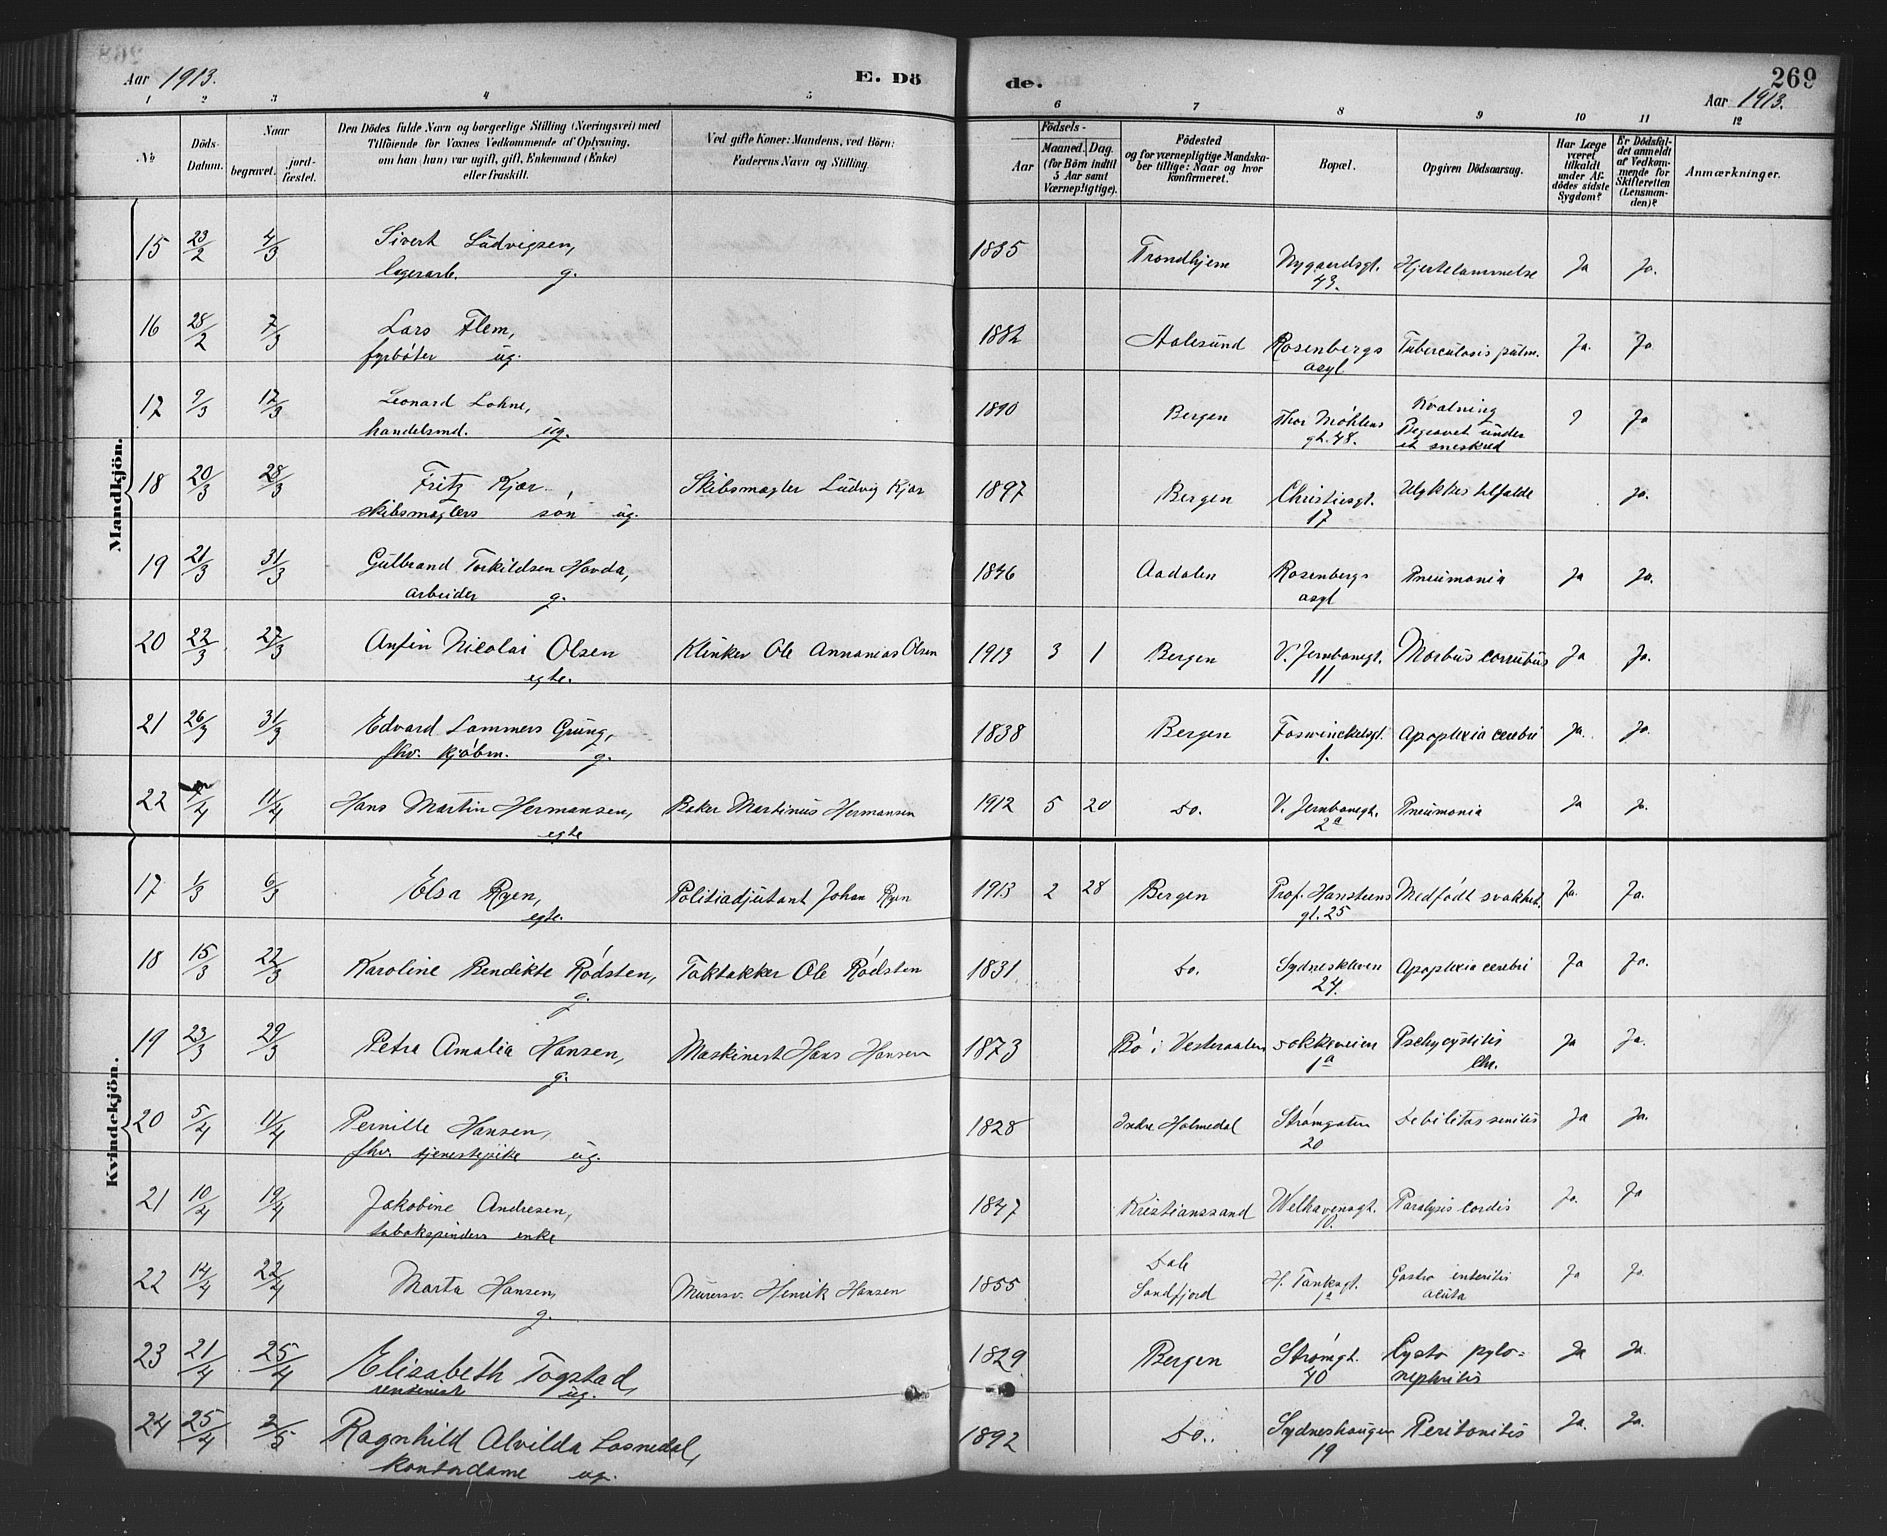 Aar 1913.
E. Dö
de.
269
Aar 1913.
1 2 3 4 5 6 7 8 9 10 11 12
No
Döds-Datum.
Naar
begravet.
jord-fæstet.
Den Dödes fulde Navn og borgerlige Stilling (Næringsvei) med
Tilföiende for Voxnes Vedkommende af Oplysning,
om han (hun) var ugift, gift, Enkemand (Enke)
eller fraskilt.
Ved gifte Koner: Mandens, ved Börn:
Faderens Navn og Stilling.
Födsels-
Aar
Maaned. Dag.
(for Börn indtil
5 Aar samt
Værnepligtige).
Födested
og for værnepligtige Mandska-
ber tillige: Naar og hvor
konfirmeret.
Bopæl.
Opgiven Dödsaarsag.
Har Læge
været
tilkaldt
under Af-
dödes sidste
Sygdom?
Er Dödsfal-
det anmeldt
af Vedkom-
mende for
Skifteretten
(Lensman-
den)?
Anmærkninger.
Mandkjön.
15 23/2 4/3 Sivert Ludvigsen, 1835 Trondhjem Nygaardsgt. Hjertelammelse Ja Ja.
lagerarb. g. 43.
16 28/2 7/3 Lars Flem, 1882 Aalesund Rosenbergs Tuberculosis pulm. Ja. Ja
fyrbøter ug. asyl
17 9/3 17/3 Leonard Lohne, 1890 Bergen Thor Møhlens Kvælning ? Ja
handelsmd. ug. gt. 48. Begravet under
et sneskred
18 20/3 28/3 Fritz Kjær Skibsmægler Ludvig Kjær 1897 Bergen Christiesgt. Ulykkestilfælde Ja.
skibsmæglers søn ug. 17
19 21/3 31/3 Gulbrand Torkildsen Havda, 1846 Aadalen Rosenbergs Pneumonia Ja Ja.
arbeider g. asyl
20 22/3 27/3 Anfin Nicolai Olsen Klinker Ole Annanias Olsen 1913 3 1 Bergen V. Jernbanegt. Morbus Ja Ja.
egte. 11
21 26/3 31/3 Edvard Lammers Grung, 1838 Bergen Foswinckelsgt. Apoplexia cerebri Ja. Ja.
fhv. kjøbm. g. 1.
22 /4 11/4 Hans Martin Hermansen, Baker Martinus Hermansen 1912 5 20 Do. V. Jernbanegt. Pneumonia Ja Ja.
egte 2a
Kvindekjön.
17 1/3 6/3 Elsa Ryen, Politiadjutant Johan Ryen 1913 2 28 Bergen Prof. Hansteens Medfødt svakhet. Ja. Ja.
egte. gt. 25
18 15/3 22/3 Karoline Bendikte Rødsten, Taktækker Ole Rødsten 1831 Do. Sydneskleven Apoplexia cerebri Ja Ja.
g. 24.
19 23/3 29/3 Petra Amalia Hansen, Maskinist Hans Hansen 1873 Bø i Vesteraalen Dokkeveien Ja Ja.
g. 1a chr.
20 5/4 11/4 Pernille Hansen, 1828 Indre Holmedal Strømgaten Debilitas senilis Ja Ja.
fhv. tjenestepike ug. 20
21 10/4 19/4 Jakobine Andresen, 1847 Kristianssand Welhavensgt. Paralysis cordis Ja. Ja
tobakspinders enke 10.
22 14/4 22/4 Marta Hansen, Murersv. Henrik Hansen 1855 Dale H. Tanksgt. Gastro enteritis Ja Ja.
g. Sandfjord 1a acuta
23 21/4 25/4 Elisabeth Togstad, 1829 Bergen Strømgt. Cysto pylo= Ja Ja.
rentenist ug. 40 nephritis
24 25/4 2/5 Ragnhild Alvilda Losnedal, 1892 Do. Sydneshaugen Peritonitis Ja. Ja.
kontordame ug. 19